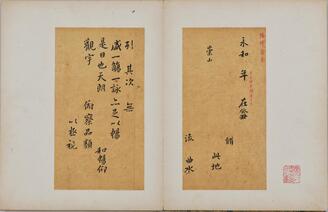 永和 年 在癸
崇山
領
此地
流 曲水
引 其次 無
盛一觴一詠亦足以暢
是日也天朗 和暢仰
觀宇 俯察品類
以極視